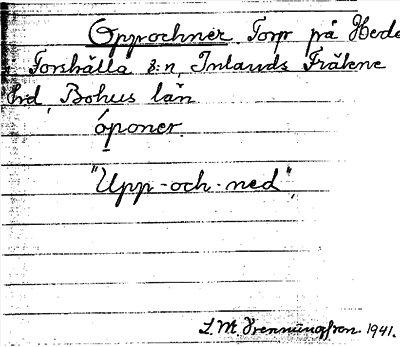 Opprochner Torp på Hede
Forshälla s:n, Inlands Fräkne
hrd, Bohus län
óponer.
"Upp-och-ned",
L. M. Svenningsson 1941.